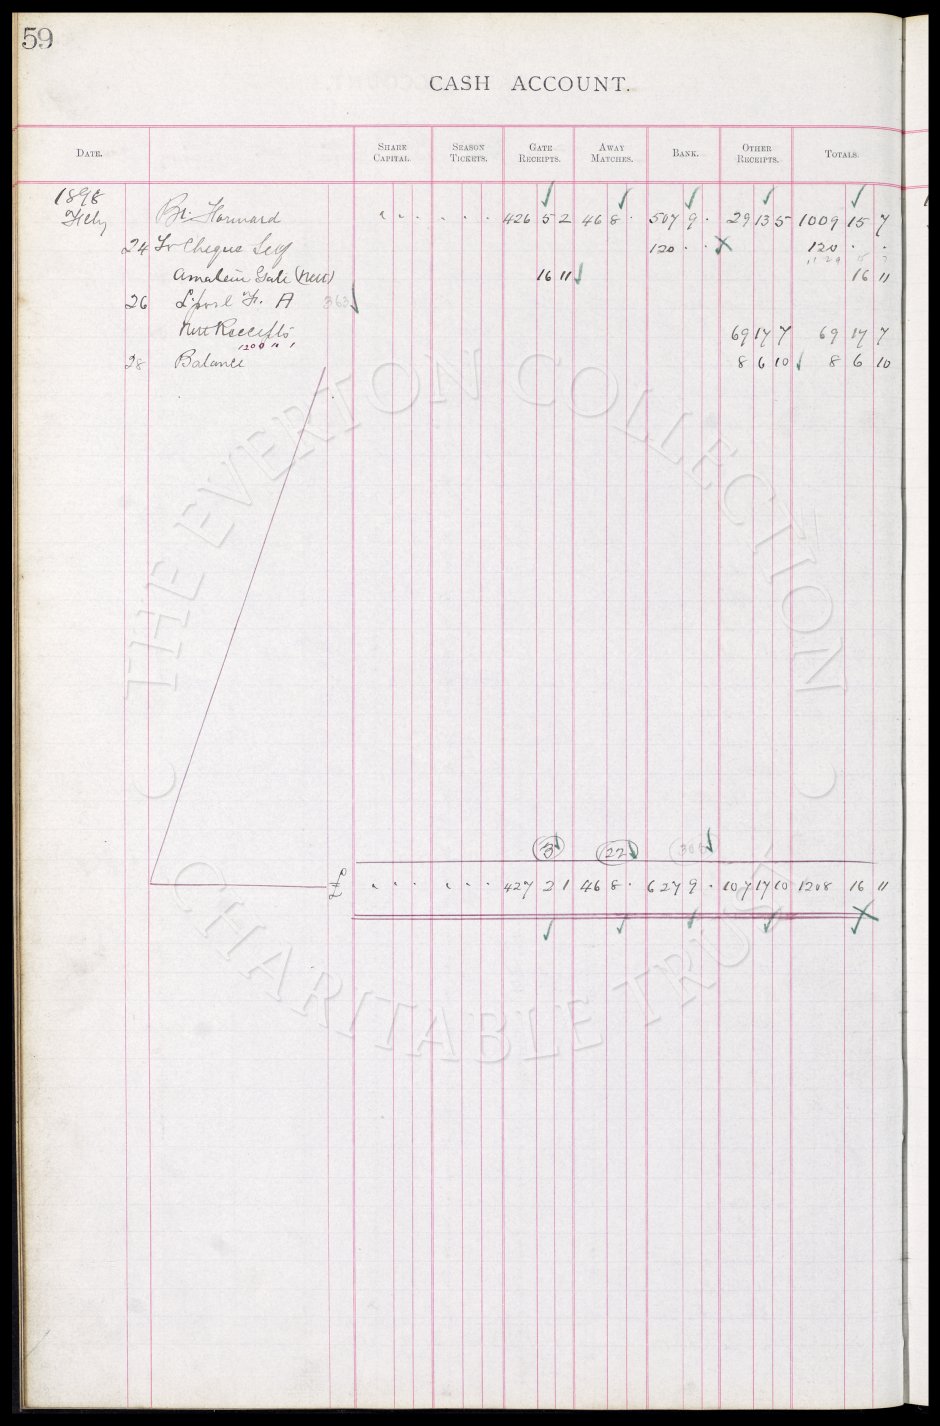 59
CASH ACCOUNT.
DATE. SHARE CAPITAL. SEASON TICKETS. GATE RECEIPTS. AWAY MATCHES. BANK. OTHER RECEIPTS. TOTALS.
1898
Feby Bt. Forward " " " " " " 426 5 2 46 8 " 507 9 " 29 13 5 1009 15 7
24 To Cheque Self 120 " " 120 " "
Amateur Gate (Nett) 16 11 16 11
26 L'pool F. A 363
Nett Receipts 69 17 7 69 17 7
1200 " 1
28 Balance 8 6 10 8 6 10
3 22
£ " " " " " " 427 2 1 46 8 " 627 9 " 107 17 10 1208 16 11
THE EVERTON COLLECTION
CHARITABLE TRUST